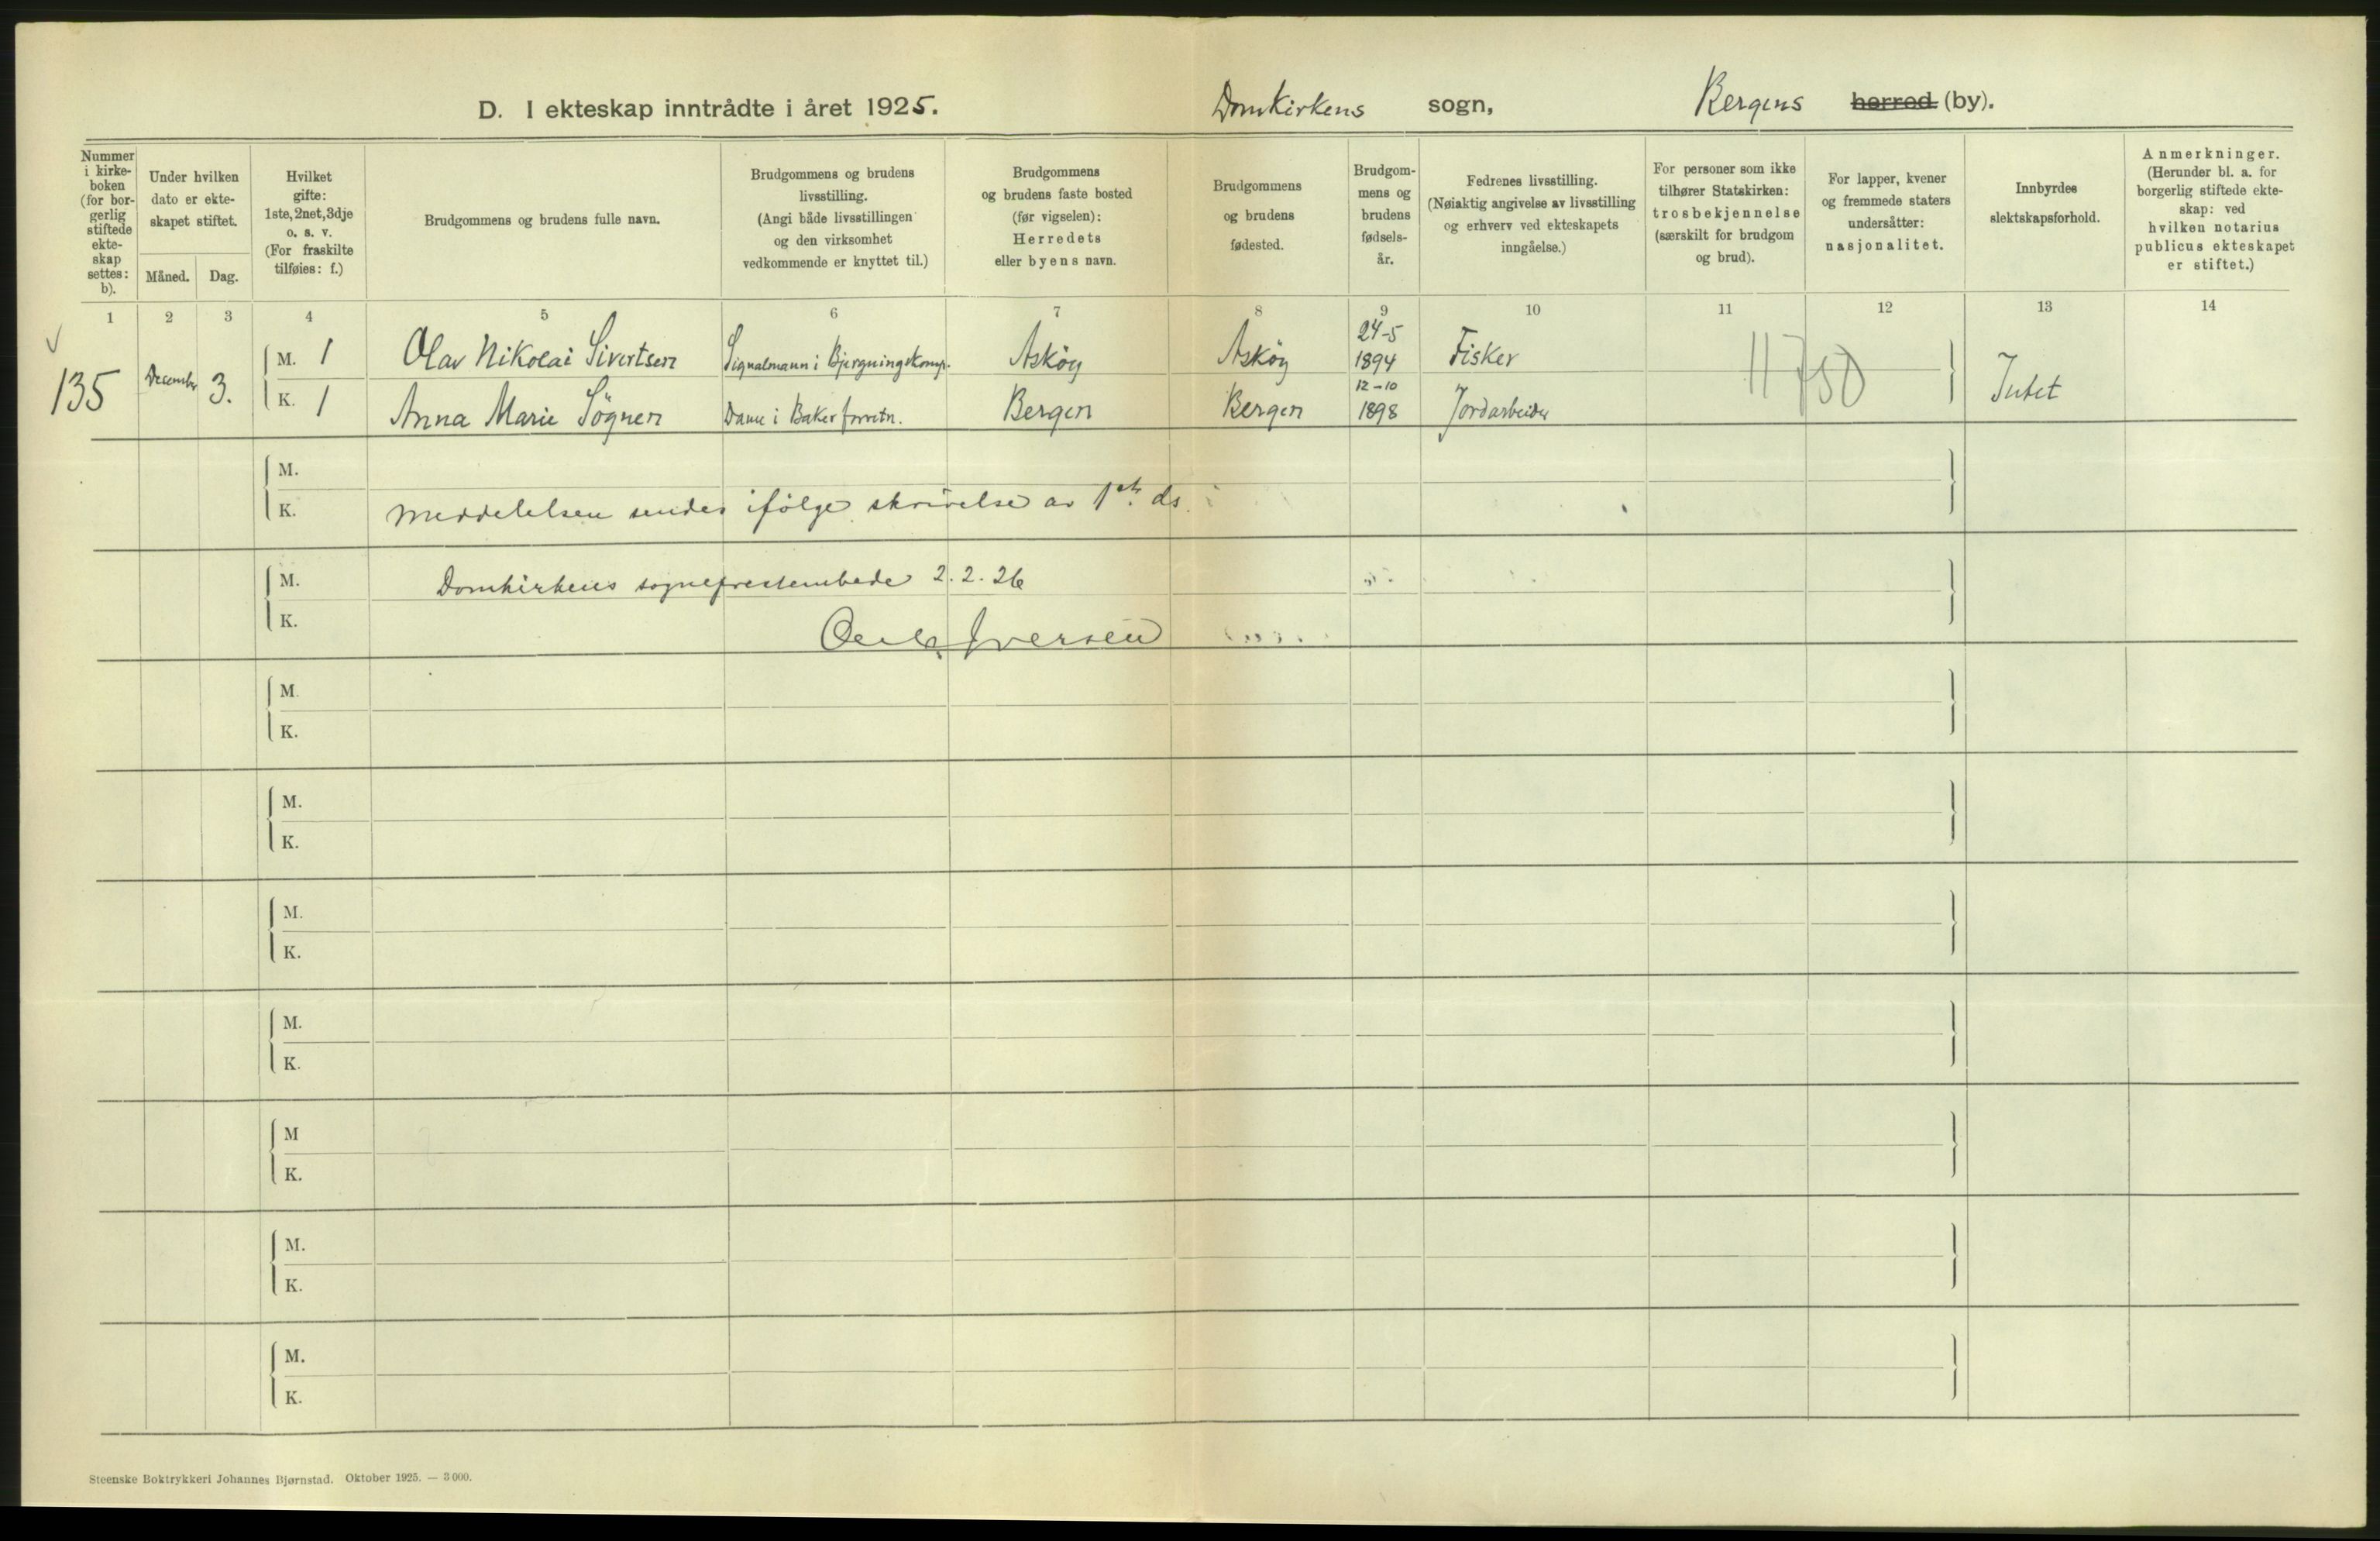 D. I ekteskap inntrådte i året 1925. Domkirkens sogn, Bergens herred (by).
Nummer i kirke-boken (for bor-gerlig stiftede ekte-skap settes: b).
Under hvilken dato er ekte-skapet stiftet.
Måned. Dag.
Hvilket gifte: 1ste, 2net, 3dje o. s. v. (For fraskilte tilføies: f.)
Brudgommens og brudens fulle navn.
Brudgommens og brudens livsstilling. (Angi både livsstillingen og den virksomhet vedkommende er knyttet til.)
Brudgommens og brudens faste bosted (før vigselen): Herredets eller byens navn.
Brudgommens og brudens fødested.
Brudgom-mens og brudens fødsels-år.
Fedrenes livsstilling. (Nøiaktig angivelse av livsstilling og erhverv ved ekteskapets inngåelse.)
For personer som ikke tilhører Statskirken: trosbekjennelse (særskilt for brudgom og brud).
For lapper, kvener og fremmede staters undersåtter: nasjonalitet.
Innbyrdes slektskapsforhold.
Anmerkninger. (Herunder bl. a. for borgerlig stiftede ekte-skap: ved hvilken notarius publicus ekteskapet er stiftet.)
1 2 3 4 5 6 7 8 9 10 11 12 13 14
135 Desember 3. M. 1 Olav Nikolai Sivertsen Signalmann i Bjergningskomp. Askøy Askøy 24-5 1894 Fisker
K. 1 Anna Marie Sögnen Dame i Bakerforretn. Bergen Bergen 12-10 1898 Jordarbeider Intet
M.
K. Meddelelsen sendes ifølge skrivelse av 1ste ds.
M. Domkirkens sogneprestembede 2.2.26
K. Iversen
M.
K.
M.
K.
M.
K.
M.
K.
M
K.
M.
K.
M.
K.
Steenske Boktrykkeri Johannes Bjørnstad. Oktober 1925. — 3 000.